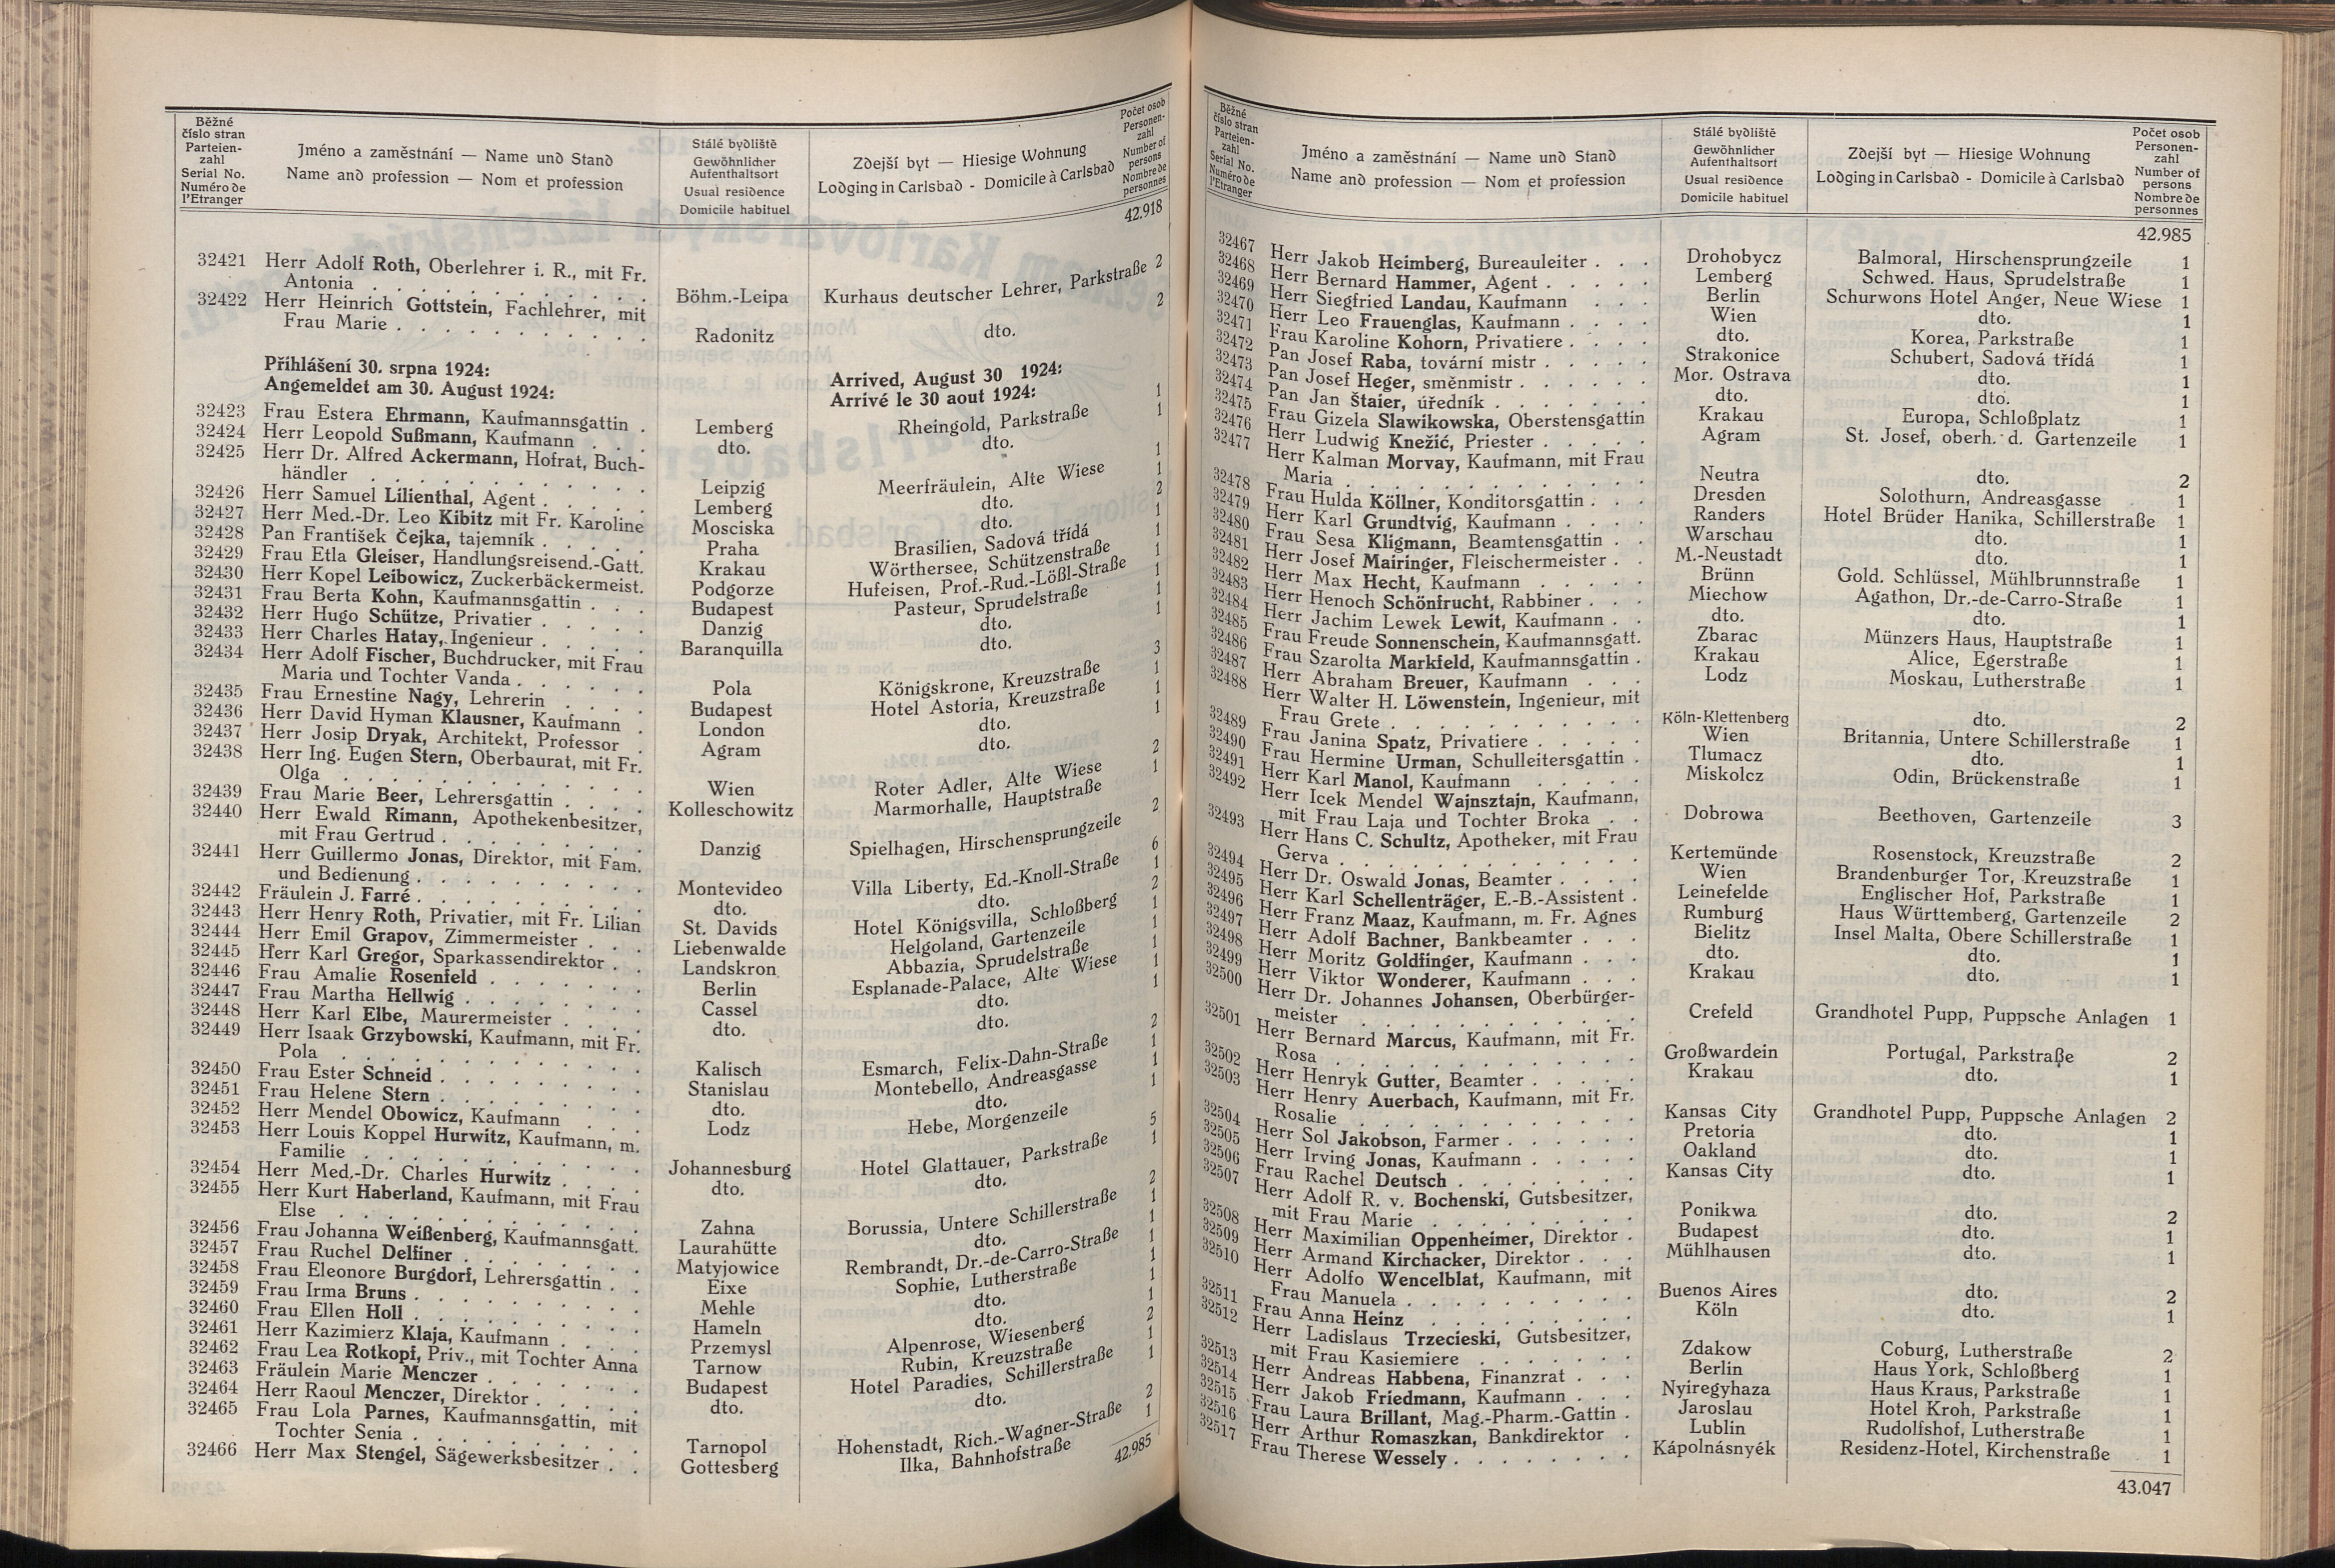 Běžné
číslo stran
Parteien-
zahl
Serial No.
Numéro de
l'Etranger
Jméno a zaměstnání — Name und Stand
Name and profession — Nom et profession
Stálé bydliště
Gewöhnlicher
Aufenthaltsort
Usual residence
Domicile habituel
Zdejší byt — Hiesige Wohnung
Lodging in Carlsbad - Domicile à Carlsbad
Počet osob
Personen-
zahl
Number of
persons
Nombre de
personnes
42.918
32421 Herr Adolf Roth, Oberlehrer i. R., mit Fr.
Antonia . . . Böhm.-Leipa Kurhaus deutscher Lehrer, Parkstraße 2
32422 Herr Heinrich Gottstein, Fachlehrer, mit
Frau Marie . . . Radonitz dto. 2
Přihlášeni 30. srpna 1924: Arrived, August 30 1924:
Angemeldet am 30. August 1924: Arrivé le 30 aout 1924:
32423 Frau Estera Ehrmann, Kaufmannsgattin . Lemberg Rheingold, Parkstraße 1
32424 Herr Leopold Sußmann, Kaufmann . . . dto. dto. 1
32425 Herr Dr. Alfred Ackermann, Hofrat, Buch-
händler . . . Leipzig Meerfräulein, Alte Wiese 1
32426 Herr Samuel Lilienthal, Agent . . . Lemberg dto. 1
32427 Herr Med.-Dr. Leo Kibitz mit Fr. Karoline Mosciska dto. 2
32428 Pan František Čejka, tajemník . . . Praha Brasilien, Sadová třídá 1
32429 Frau Etla Gleiser, Handlungsreisend.-Gatt. Krakau Wörthersee, Schützenstraße 1
32430 Herr Kopel Leibowicz, Zuckerbäckermeist. Podgorze Hufeisen, Prof.-Rud.-Lößl-Straße 1
32431 Frau Berta Kohn, Kaufmannsgattin . . . Budapest Pasteur, Sprudelstraße 1
32432 Herr Hugo Schütze, Privatier . . . Danzig dto. 1
32433 Herr Charles Hatay, Ingenieur . . . Baranquilla dto. 1
32434 Herr Adolf Fischer, Buchdrucker, mit Frau
Maria und Tochter Vanda . . . Pola Königskrone, Kreuzstraße 3
32435 Frau Ernestine Nagy, Lehrerin . . . Budapest Hotel Astoria, Kreuzstraße 1
32436 Herr David Hyman Klausner, Kaufmann . London dto. 1
32437 Herr Josip Dryak, Architekt, Professor . Agram dto. 1
32438 Herr Ing. Eugen Stern, Oberbaurat, mit Fr.
Olga . . . Wien Roter Adler, Alte Wiese 2
32439 Frau Marie Beer, Lehrersgattin . . . Kolleschowitz Marmorhalle, Hauptstraße 1
32440 Herr Ewald Rimann, Apothekenbesitzer,
mit Frau Gertrud . . . Danzig Spielhagen, Hirschensprungzeile 2
32441 Herr Guillermo Jonas, Direktor, mit Fam.
und Bedienung . . . Montevideo Villa Liberty, Ed.-Knoll-Straße 6
32442 Fräulein J. Farré . . . dto. dto. 1
32443 Herr Henry Roth, Privatier, mit Fr. Lilian St. Davids Hotel Königsvilla, Schloßberg 2
32444 Herr Emil Grapov, Zimmermeister . . . Liebenwalde Helgoland, Gartenzeile 1
32445 Herr Karl Gregor, Sparkassendirektor . . Landskron Abbazia, Sprudelstraße 1
32446 Frau Amalie Rosenfeld . . . Berlin Esplanade-Palace, Alte Wiese 1
32447 Frau Martha Hellwig . . . Cassel dto. 1
32448 Herr Karl Elbe, Maurermeister . . . dto. dto. 1
32449 Herr Isaak Grzybowski, Kaufmann, mit Fr.
Pola . . . Kalisch Esmarch, Felix-Dahn-Straße 2
32450 Frau Ester Schneid . . . Stanislau Montebello, Andreasgasse 1
32451 Frau Helene Stern . . . dto. dto. 1
32452 Herr Mendel Obowicz, Kaufmann . . . Lodz Hebe, Morgenzeile 1
32453 Herr Louis Koppel Hurwitz, Kaufmann, m.
Familie . . . Johannesburg Hotel Glattauer, Parkstraße 5
32454 Herr Med.-Dr. Charles Hurwitz . . . dto. dto. 1
32455 Herr Kurt Haberland, Kaufmann, mit Frau
Else . . . Zahna Borussia, Untere Schillerstraße 2
32456 Frau Johanna Weißenberg, Kaufmannsgatt. Laurahütte dto. 1
32457 Frau Ruchel Delfiner . . . Matyjowice Rembrandt, Dr.-de-Carro-Straße 1
32458 Frau Eleonore Burgdorf, Lehrersgattin . . Eixe Sophie, Lutherstraße 1
32459 Frau Irma Bruns . . . Mehle dto. 1
32460 Frau Ellen Holl . . . Hameln dto. 1
32461 Herr Kazimierz Klaja, Kaufmann . . . Przemysl Alpenrose, Wiesenberg 1
32462 Frau Lea Rotkopf, Priv., mit Tochter Anna Tarnow Rubin, Kreuzstraße 2
32463 Fräulein Marie Menczer . . . Budapest Hotel Paradies, Schillerstraße 1
32464 Herr Raoul Menczer, Direktor . . . dto. dto. 1
32465 Frau Lola Parnes, Kaufmannsgattin, mit
Tochter Senia . . . Tarnopol Hohenstadt, Rich.-Wagner-Straße 2
32466 Herr Max Stengel, Sägewerksbesitzer . . Gottesberg Ilka, Bahnhofstraße 1
42.985
Běžné
číslo stran
Parteien-
zahl
Serial No.
Numéro de
l'Etranger
Jméno a zaměstnání — Name und Stand
Name and profession — Nom et profession
Stálé bydliště
Gewöhnlicher
Aufenthaltsort
Usual residence
Domicile habituel
Zdejší byt — Hiesige Wohnung
Lodging in Carlsbad - Domicile à Carlsbad
Počet osob
Personen-
zahl
Number of
persons
Nombre de
personnes
42.985
32467 Herr Jakob Heimberg, Bureauleiter . . . Drohobycz Balmoral, Hirschensprungzeile 1
32468 Herr Bernard Hammer, Agent . . . Lemberg Schwed. Haus, Sprudelstraße 1
32469 Herr Siegfried Landau, Kaufmann . . . Berlin Schurwons Hotel Anger, Neue Wiese 1
32470 Herr Leo Frauenglas, Kaufmann . . . Wien dto. 1
32471 Frau Karoline Kohorn, Privatiere . . . dto. Korea, Parkstraße 1
32472 Pan Josef Raba, tovární mistr . . . Strakonice Schubert, Sadová třídá 1
32473 Pan Josef Heger, směnmistr . . . Mor. Ostrava dto. 1
32474 Pan Jan Štaier, úředník . . . dto. dto. 1
32475 Frau Gizela Slawikowska, Oberstensgattin Krakau Europa, Schloßplatz 1
32476 Herr Ludwig Knežić, Priester . . . Agram St. Josef, oberh. d. Gartenzeile 1
32477 Herr Kalman Morvay, Kaufmann, mit Frau
Maria . . . Neutra dto. 2
32478 Frau Hulda Köllner, Konditorsgattin . . . Dresden Solothurn, Andreasgasse 1
32479 Herr Karl Grundtvig, Kaufmann . . . Randers Hotel Brüder Hanika, Schillerstraße 1
32480 Frau Sesa Kligmann, Beamtensgattin . . Warschau dto. 1
32481 Herr Josef Mairinger, Fleischermeister . . M.-Neustadt dto. 1
32482 Herr Max Hecht, Kaufmann . . . Brünn Gold. Schlüssel, Mühlbrunnstraße 1
32483 Herr Henoch Schönfrucht, Rabbiner . . . Miechow Agathon, Dr.-de-Carro-Straße 1
32484 Herr Jachim Lewek Lewit, Kaufmann . . dto. dto. 1
32485 Frau Freude Sonnenschein, Kaufmannsgatt. Zbarac Münzers Haus, Hauptstraße 1
32486 Frau Szarolta Markfeld, Kaufmannsgattin . Krakau Alice, Egerstraße 1
32487 Herr Abraham Breuer, Kaufmann . . . Lodz Moskau, Lutherstraße 1
32488 Herr Walter H. Löwenstein, Ingenieur, mit
Frau Grete . . . Köln-Klettenberg dto. 2
32489 Frau Janina Spatz, Privatiere . . . Wien Britannia, Untere Schillerstraße 1
32490 Frau Hermine Urman, Schulleitersgattin . Tlumacz dto. 1
32491 Herr Karl Manol, Kaufmann . . . Miskolcz Odin, Brückenstraße 1
32492 Herr Icek Mendel Wajnsztajn, Kaufmann,
mit Frau Laja und Tochter Broka . . Dobrowa Beethoven, Gartenzeile 3
32493 Herr Hans C. Schultz, Apotheker, mit Frau
Gerva . . . Kertemünde Rosenstock, Kreuzstraße 2
32494 Herr Dr. Oswald Jonas, Beamter . . . Wien Brandenburger Tor, Kreuzstraße 1
32495 Herr Karl Schellenträger, E.-B.-Assistent . Leinefelde Englischer Hof, Parkstraße 1
32496 Herr Franz Maaz, Kaufmann, m. Fr. Agnes Rumburg Haus Württemberg, Gartenzeile 2
32497 Herr Adolf Bachner, Bankbeamter . . . Bielitz Insel Malta, Obere Schillerstraße 1
32498 Herr Moritz Goldfinger, Kaufmann . . . dto. dto. 1
32499 Herr Viktor Wonderer, Kaufmann . . . Krakau dto. 1
32500 Herr Dr. Johannes Johansen, Oberbürger-
meister . . . Crefeld Grandhotel Pupp, Puppsche Anlagen 1
32501 Herr Bernard Marcus, Kaufmann, mit Fr.
Rosa . . . Großwardein Portugal, Parkstraße 2
32502 Herr Henryk Gutter, Beamter . . . Krakau dto. 1
32503 Herr Henry Auerbach, Kaufmann, mit Fr.
Rosalie . . . Kansas City Grandhotel Pupp, Puppsche Anlagen 2
32504 Herr Sol Jakobson, Farmer . . . Pretoria dto. 1
32505 Herr Irving Jonas, Kaufmann . . . Oakland dto. 1
32506 Frau Rachel Deutsch . . . Kansas City dto. 1
32507 Herr Adolf R. v. Bochenski, Gutsbesitzer,
mit Frau Marie . . . Ponikwa dto. 2
32508 Herr Maximilian Oppenheimer, Direktor . Budapest dto. 1
32509 Herr Armand Kirchacker, Direktor . . . Mühlhausen dto. 1
32510 Herr Adolfo Wencelblat, Kaufmann, mit
Frau Manuela . . . Buenos Aires dto. 2
32511 Frau Anna Heinz . . . Köln dto. 1
32512 Herr Ladislaus Trzecieski, Gutsbesitzer,
mit Frau Kasiemiere . . . Zdakow Coburg, Lutherstraße 2
32513 Herr Andreas Habbena, Finanzrat . . . Berlin Haus York, Schloßberg 1
32514 Herr Jakob Friedmann, Kaufmann . . . Nyiregyhaza Haus Kraus, Parkstraße 1
32515 Frau Laura Brillant, Mag.-Pharm.-Gattin . Jaroslau Hotel Kroh, Parkstraße 1
32516 Herr Arthur Romaszkan, Bankdirektor . Lublin Rudolfshof, Lutherstraße 1
32517 Frau Therese Wessely . . . Kápolnásnyék Residenz-Hotel, Kirchenstraße 1
43.047